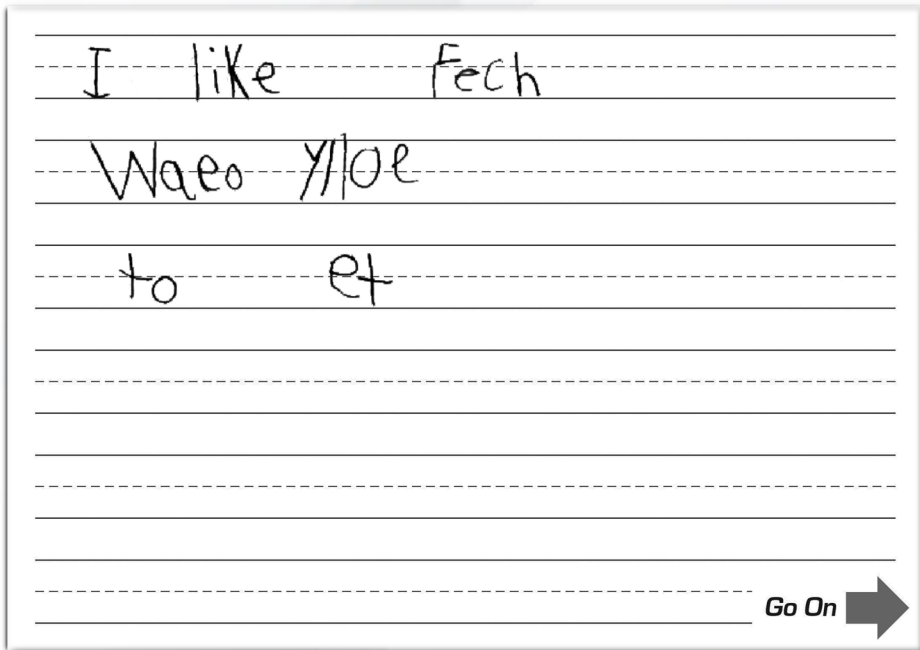 I like Fech
Waeo
to et
Go On